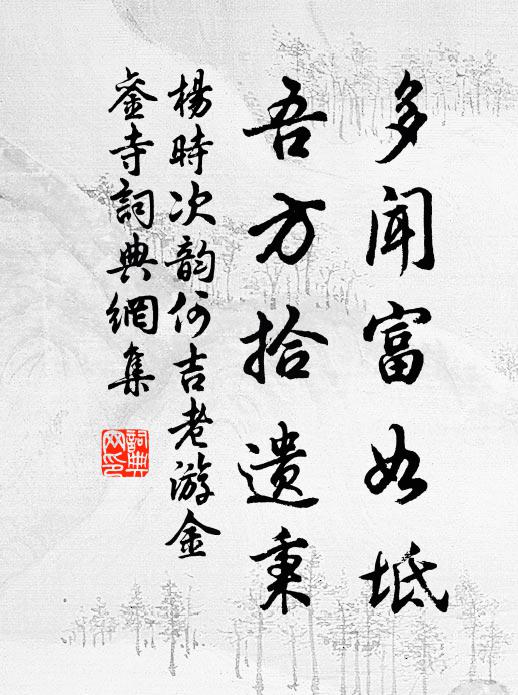 多闻富如坻
吾方拾遗秉
楊時次韵何吉老游金
銮寺詞典網集
詞典
网印